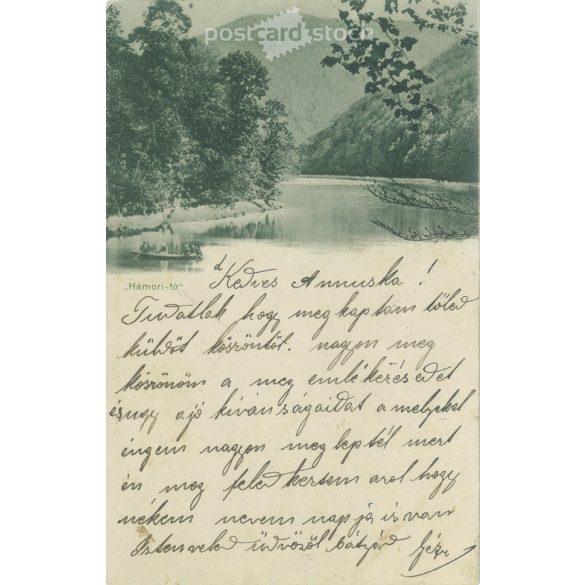 postcard stock
„Hámori-tó"
Kedves Annuska!
Tudatlak hogy meg kaptam tőled
küldöt köszöntöt. nagyon meg
köszönöm a meg emlékezés edet
és ugy a jó kívánságaidat a melyekel
engem nagyon meg leptél mert
én meg feled keztem arol hogy
nékem nevem nap ja is van
Isten veled üdvözöl bátyád Géza